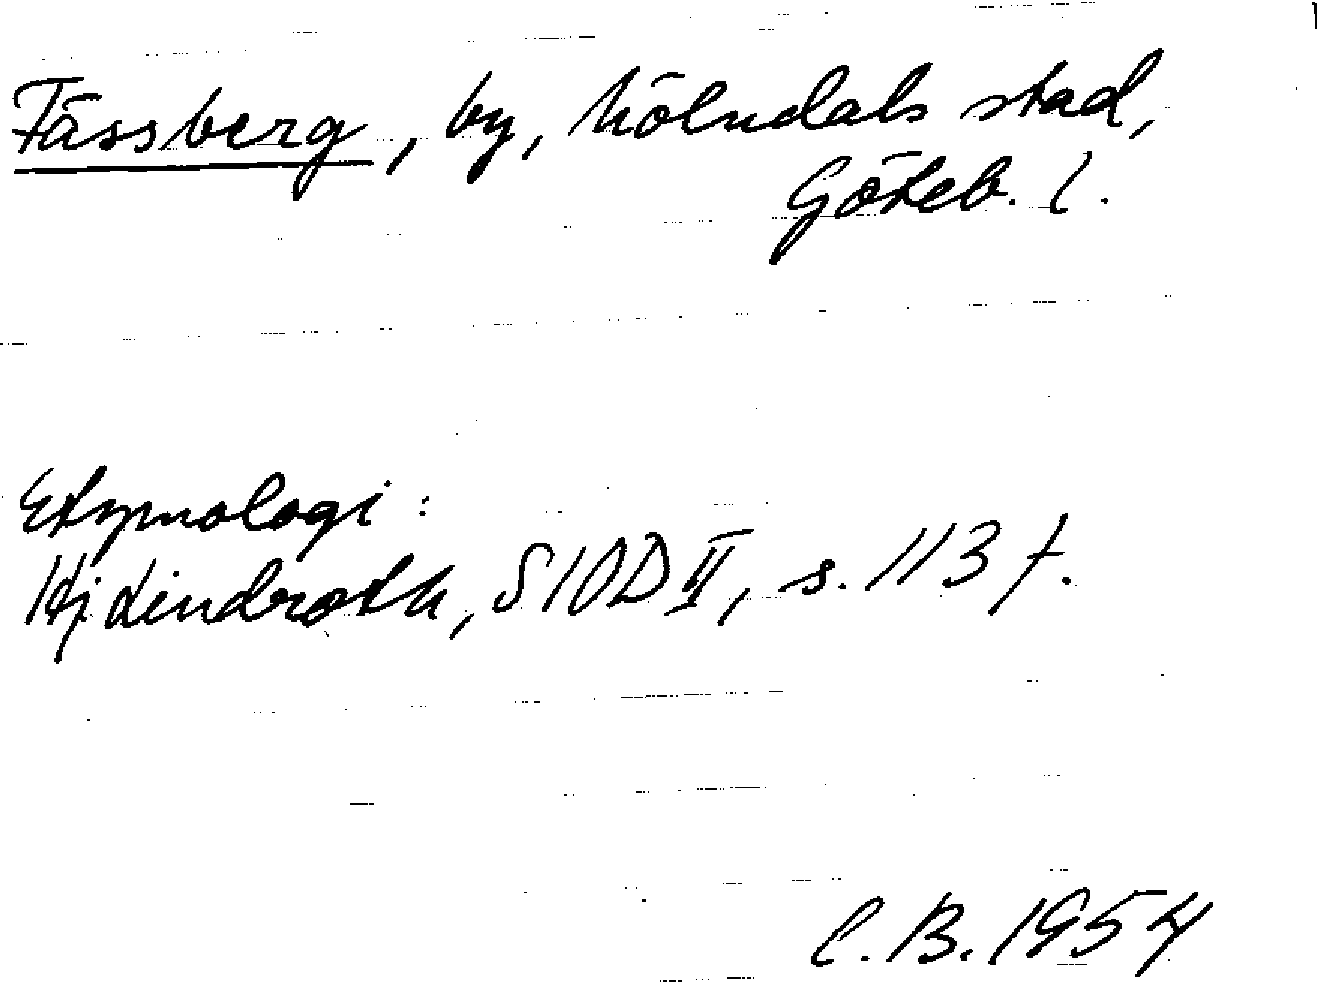 Fässberg, by, Mölndals stad,
Göteb. l.
Etymologi:
Hj Lindroth, SIOD II, s. 113 f.
C.B. 1954